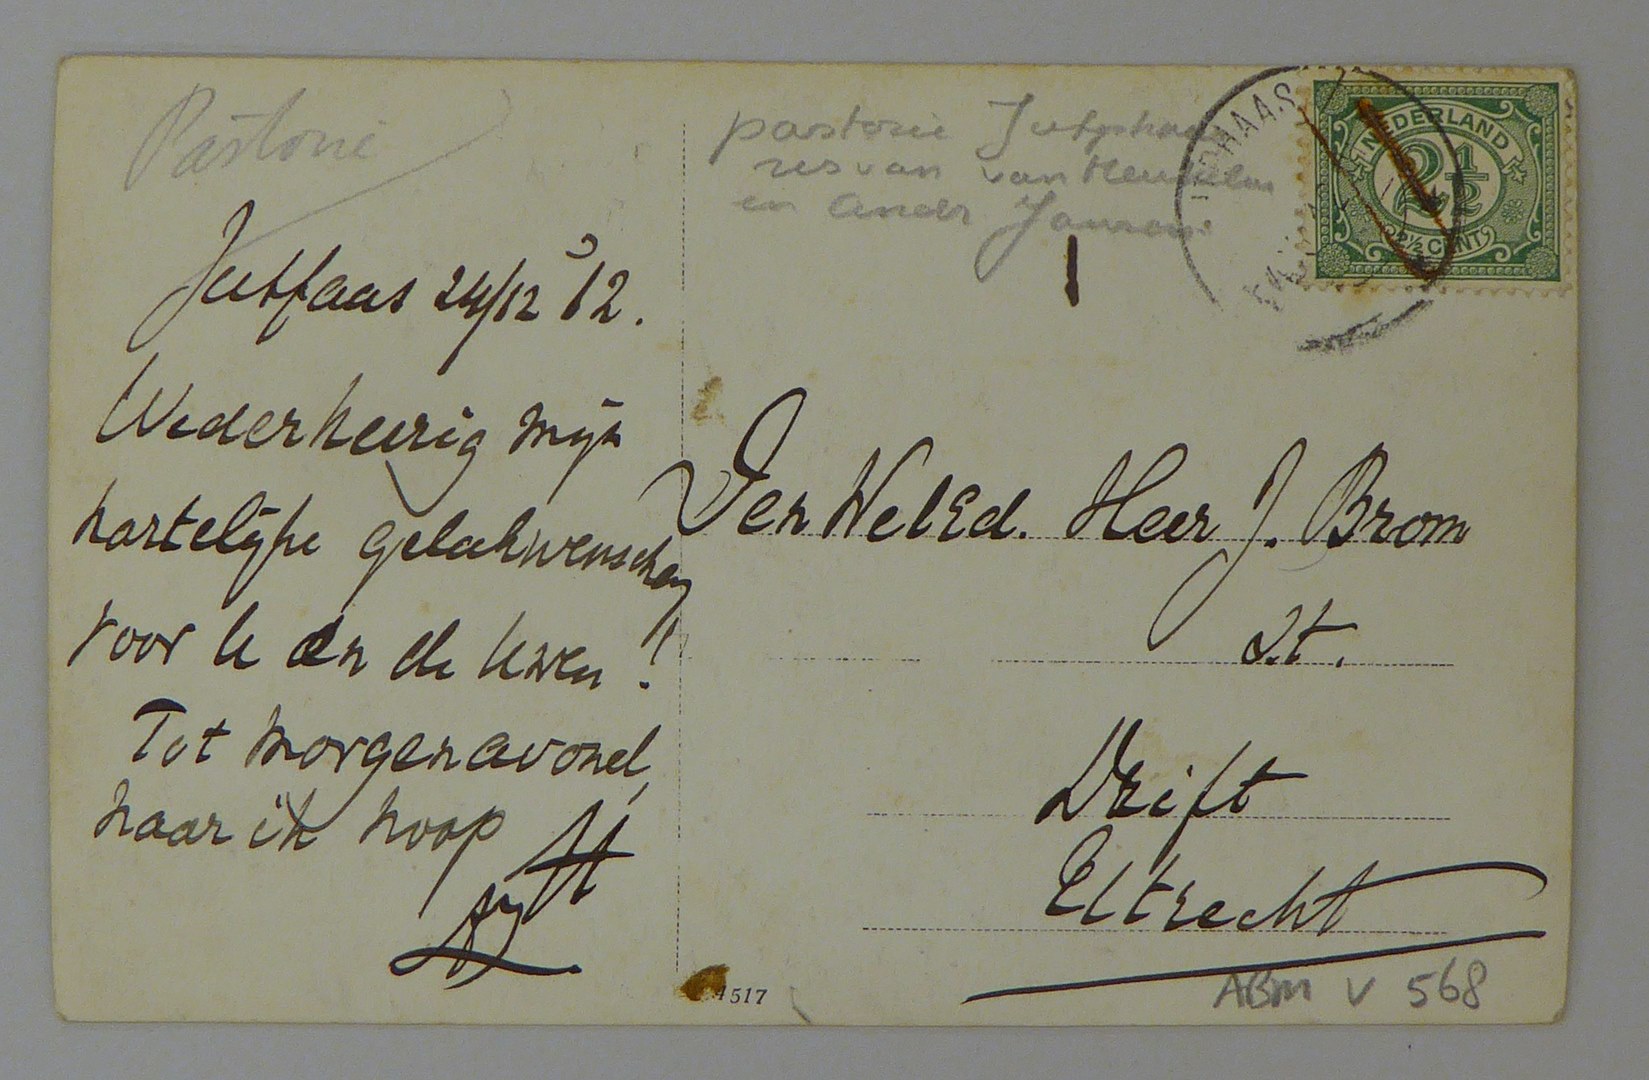 Pastorie
Jutfaas 24/12 '12.
Wederkeerig mijn
hartelijke gelukwenschen
voor U en de Uwen!
Tot morgenavond,
naar ik hoop
pastorie Jutphaas
res van van Heukelum
en ander Jansen
NEDERLAND
2½
2½ CENT
Den WelEd. Heer J. Brom
Drift
Utrecht
4517
ABM v 568